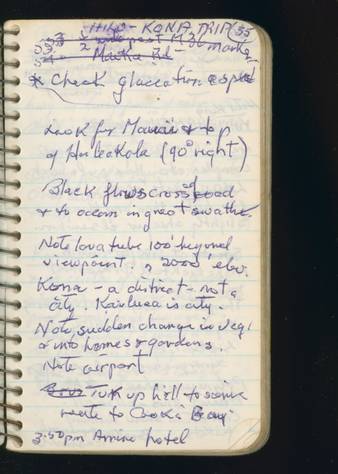 HILO - KONA TRIP 35
Mauka Rd - marker
* Check glaciation aspect
Look for Mauii & top
of Haleakola (90° right)
Black flows cross road
& to ocean in great swaths.
Note lava tube 100' beyond
viewpoint. 2000' elev.
Kona - a district - not a
city. Kailuea is city.
Note, sudden change in vegi
& into homes & gardens.
Note airport
Turn up hill to scenic
route to Cooks Bay
3:50pm Arrive hotel